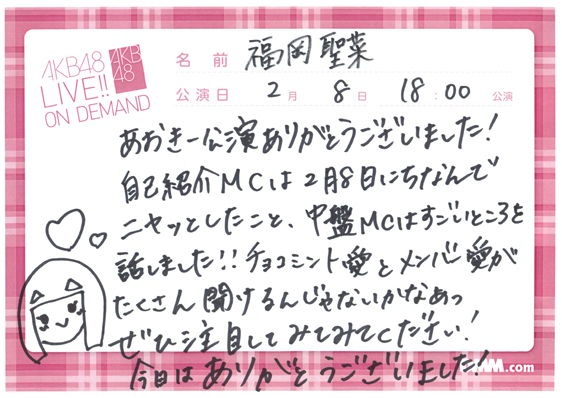 AKB48
LIVE!!
ON DEMAND
AKB
48
名前 福岡聖菜
公演日 2月 8日 18:00 公演
あおきー公演ありがとうございました!
自己紹介MCは2月8日にちなんで
ニヤッとしたこと、中盤MCはすごいところを
話しました!!チョコミント愛とメンバー愛が
たくさん聞けるんじゃないかなあっ
ぜひ注目してみてみてください!
今日はありがとうございました!
DMM.com